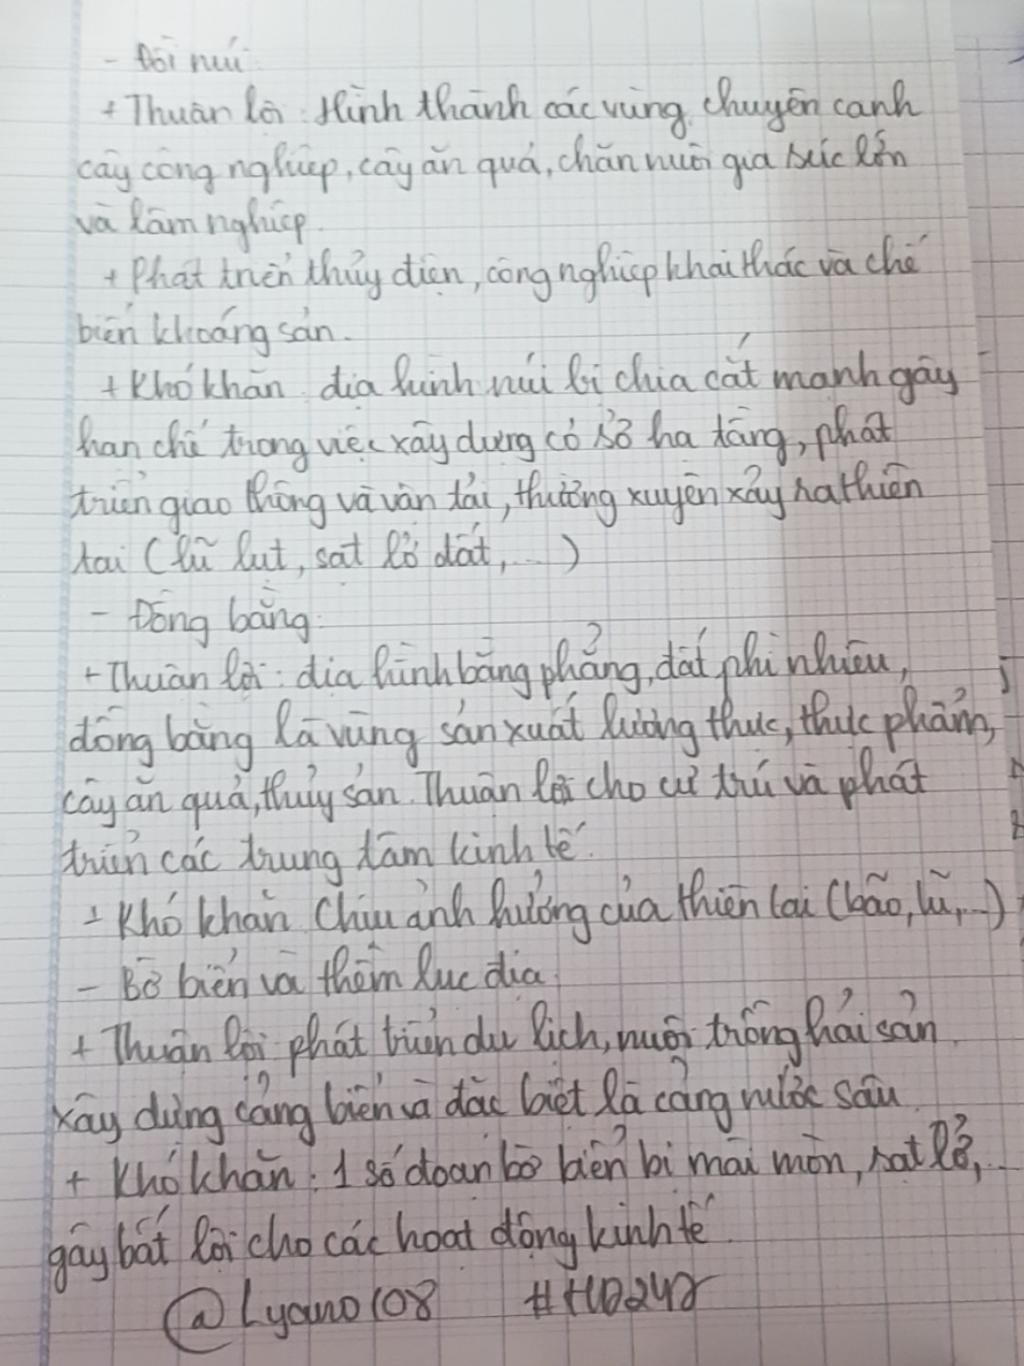 - Đồi núi:
+ Thuận lợi: Hình thành các vùng chuyên canh
cây công nghiệp, cây ăn quả, chăn nuôi gia súc lớn
và lâm nghiệp.
+ Phát triển thủy điện, công nghiệp khai thác và chế
biến khoáng sản.
+ Khó khăn: địa hình núi bị chia cắt mạnh gây
hạn chế trong việc xây dựng cơ sở hạ tầng, phát
triển giao thông và vận tải, thường xuyên xảy ra thiên
tai (lũ lụt, sạt lở đất,...)
- Đồng bằng:
+ Thuận lợi: địa hình bằng phẳng, đất phì nhiêu,
đồng bằng là vùng sản xuất lương thực, thực phẩm,
cây ăn quả, thủy sản. Thuận lợi cho cư trú và phát
triển các trung tâm kinh tế.
+ Khó khăn: Chịu ảnh hưởng của thiên tai (bão, lũ,...)
- Bờ biển và thềm lục địa:
+ Thuận lợi: phát triển du lịch, nuôi trồng hải sản,
xây dựng cảng biển và đặc biệt là cảng nước sâu.
+ Khó khăn: 1 số đoạn bờ biển bị mài mòn, sạt lở,...
gây bất lợi cho các hoạt động kinh tế.